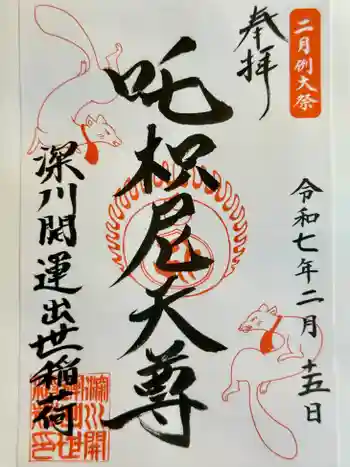 二月例大祭
奉拝
令和七年二月十五日
吒枳尼天尊
深川開運出世稲荷